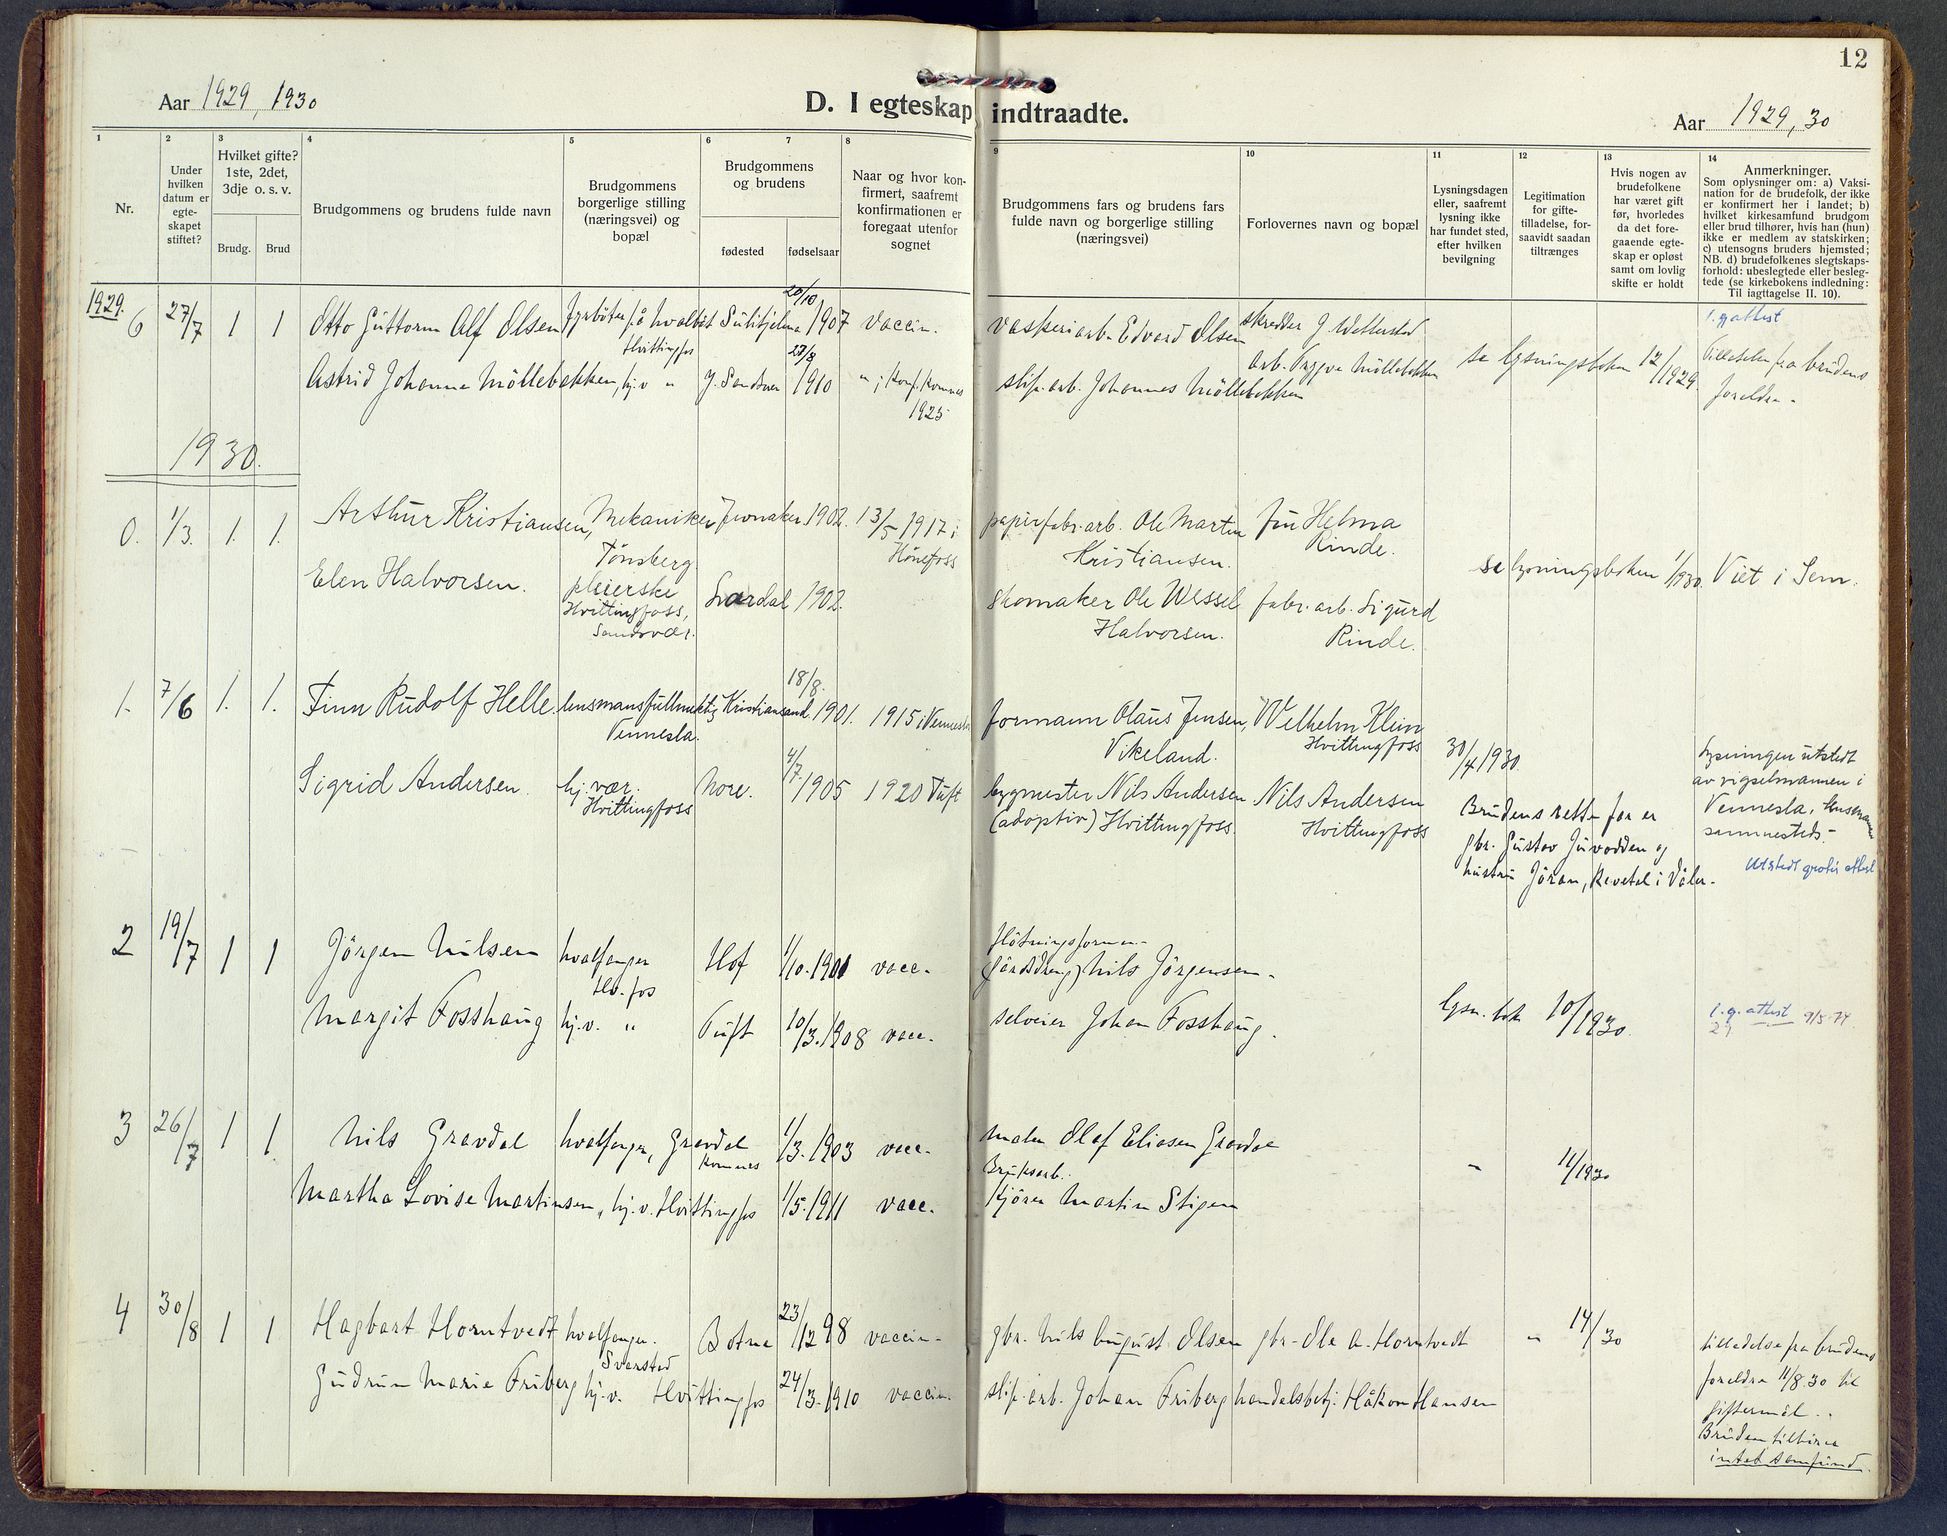 12
Aar 1929, 1930
D. I egteskap indtraadte.
Aar 1929, 30
1
2
3
4
5
6
7
8
9
10
11
12
13
14
Nr.
Under hvilken datum er egte-skapet stiftet?
Hvilket gifte? 1ste, 2det, 3dje o. s. v.
Brudg.
Brud
Brudgommens og brudens fulde navn
Brudgommens borgerlige stilling (næringsvei) og bopæl
Brudgommens og brudens
fødested
fødselsaar
Naar og hvor kon-firmert, saafremt konfirmationen er foregaat utenfor sognet
Brudgommens fars og brudens fars fulde navn og borgerlige stilling (næringsvei)
Forlovernes navn og bopæl
Lysningsdagen eller, saafremt lysning ikke har fundet sted, efter hvilken bevilgning
Legitimation for gifte-tilladelse, for-saavidt saadan tiltrænges
Hvis nogen av brudefolkene har været gift før, hvorledes da det fore-gaaende egte-skap er opløst samt om lovlig skifte er holdt
Anmerkninger.
Som oplysninger om: a) Vaksi-nation for de brudefolk, der ikke er konfirmert her i landet; b) hvilket kirkesamfund brudgom eller brud tilhører, hvis han (hun) ikke er medlem av statskirken; c) utensogns bruders hjemsted; NB. d) brudefolkenes slegtskaps-forhold: ubeslegtede eller besleg-tede (se kirkebokens indledning: Til iagttagelse II. 10).
1929.
6 27/7 1 1 Otto Guttorm Alf Olsen fyrbøter på hvalbåt Sulitjelma 20/10 1907 vaccin. vaskeriarb. Edvard Olsen skredder J. Wetterstad
Hvittingfos
1. g. attest
Astrid Johanne Möllebakken, hj.v " Y. Sandsvær 27/8 1910 "; Konf. Komnes 1925 slip.arb. Johannes Möllebakken arb. Trygve Möllebakken se lysningsboken 12/1929. Tilladelse fra brudens foreldre -
1930.
0. 1/3. 1. 1. Arthur Kristiansen, Mekaniker Jevnaker 1902. 13/5 1917 i Hönefoss papirfabr.arb. Ole Martin Kristiansen. fru Helma Rinde.
Tönsberg
se lysningsboken 1/1930. Viet i Sem.
Elen Halvorsen. pleierske Hvittingfoss, Sandsvær. Lardal 1902. skomaker Ole Wessel Halvorsen. fabr. arb. Sigurd Rinde.
1. 7/6 1. 1. Finn Rudolf Helle lensmansfullmektig Kristiansand 18/8. 1901. 1915 i Vennesla formann Olaus Jensen, Vikeland. Wilhelm Klim Hvittingfoss
Vennesla.
30/4 1930.
Lysningen utstedt av vigselmannen i Vennesla, sammesteds -
Sigrid Andersen. hj. vær. Hvittingfoss Nore. 4/7. 1905 1920 Tuft bygmester Nils Andersen (adoptiv) Hvittingfoss. Nils Andersen Hvittingfoss
Brudens rette far er gbr. Gustav Juvodden og hustru Jöran, Revetal i Våle.
utstedt gratis attest
2 19/7 1 1 Jörgen Nilsen hvalfanger Hv.fos Hof 1/10. 1901 vacc. flötningsforman Nils Jörgensen.
Margit Fosshaug hj.v. " Tuft 10/3. 1908 vacc. selveier Johan Fosshaug. lysn. bok 10/1930. 1. g. attest 9/5-74.
3 26/7 1 1 Nils Gravdal hvalfanger, Gravdal Komnes 1/3. 1903 vacc. maler Olaf Eliasen Gravdal
" 11/1930
Martha Lovise Martinsen, hj.v. Hvittingfos 1/5. 1911 vacc. Bruksarb. kjörer Martin Stigen
4 30/8 1 1 Hagbart Horntvedt hvalfanger. Svarstad Botne 23/12 98 vaccin. gbr. Nils August Olsen gbr. Ole A. Horntvedt " 14/30
Gudrun Marie Friberg hj.v. Hvittingfos 24/3. 1910 vaccin. slip. arb. Johan Friberg handelsbetj. Håkon Hansen
tilladelse fra brudens foreldre 11/8.30 til giftermål.
Bruden tilhörer intet samfund.